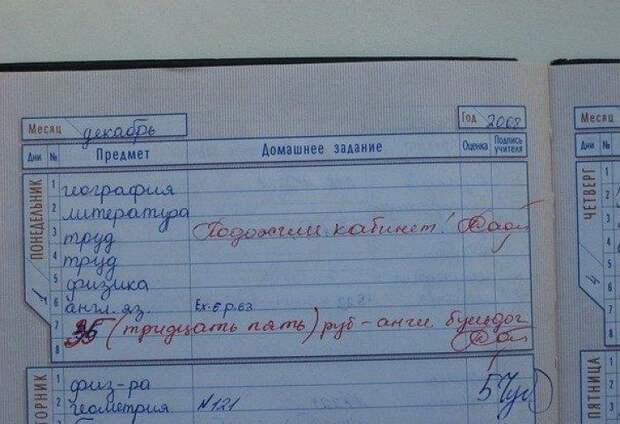 Месяц декабрь Год 2008
Дни № Предмет Домашнее задание Оценка Подпись учителя
Дни №
ПОНЕДЕЛЬНИК 1
1 география
2 литература
3 труд Подожгли кабинет!
4 труд
5 физика
6 англ. яз. Ex.6 p.63
7 35 (тридцать пять) руб - англ. бульдог
8
ВТОРНИК
1 физ-ра 5
2 геометрия N121
Месяц
Дни №
ЧЕТВЕРГ 4
1
2
3
4
5
6
7
8
ПЯТНИЦА
1
2